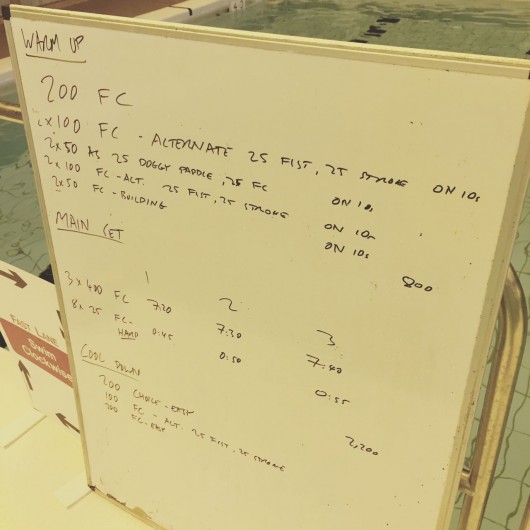 WARM UP
200 FC
2x100 FC - ALTERNATE 25 FIST, 25 STROKE ON 10s
2x50 AS 25 DOGGY PADDLE, 25 FC ON 10s
2x100 FC - ALT. 25 FIST, 25 STROKE ON 10s
2x50 FC - BUILDING ON 10s
800
MAIN SET
1 2 3
3x400 FC 7:20 7:30 7:40
8x25 FC - HARD 0:45 0:50 0:55
2,200
COOL DOWN
200 CHOICE - EASY
100 FC - ALT. 25 FIST, 25 STROKE
FC - EASY
FAST LANE
Swim
Clockwise